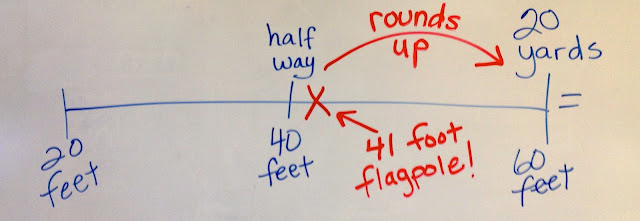 half
way
rounds
up
20
yards
=
20
feet
40
feet
41 foot
flagpole!
60
feet